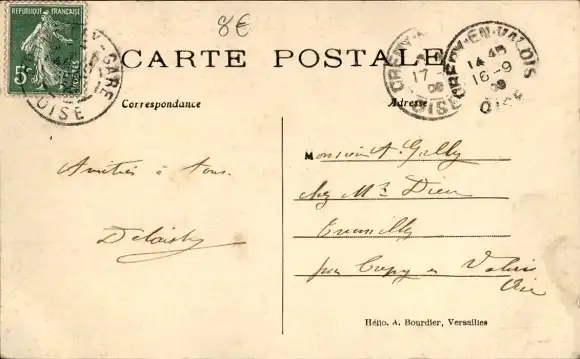 8€
RÉPUBLIQUE FRANÇAISE
5c
GARE
OISE
CARTE POSTALE
CRÉPY-EN-VALOIS
14 45
16-9
09
OISE
17
09
OISE
Correspondance
Adresse
Amitiés à tous.
Monsieur A. Gally
chez Mr. Dieu
par Crépy en Valois
Oise
Hélio. A. Bourdier, Versailles